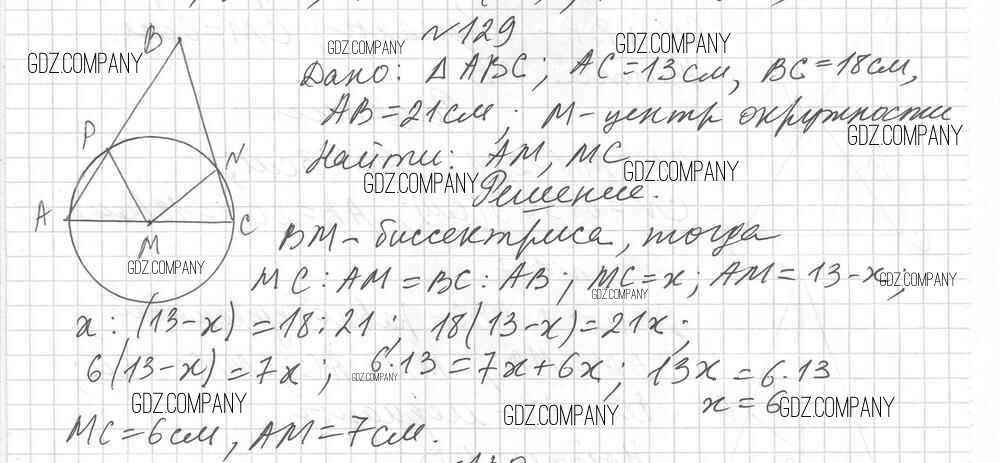 №129
B
GDZ.COMPANY GDZ.COMPANY GDZ.COMPANY
Дано: ΔABC; AC=13см, BC=18см,
AB=21см; M-центр окружности
P
GDZ.COMPANY
N
Найти: AM, MC
GDZ.COMPANY GDZ.COMPANY
Решение.
A
C
M
BM-биссектриса, тогда
GDZ.COMPANY
MC:AM=BC:AB; MC=x; AM=13-x;
GDZ.COMPANY GDZ.COMPANY
x:(13-x)=18:21; 18(13-x)=21x;
6(13-x)=7x; 6·13=7x+6x; 13x=6·13
GDZ.COMPANY
x=6
GDZ.COMPANY GDZ.COMPANY GDZ.COMPANY
MC=6см, AM=7см.